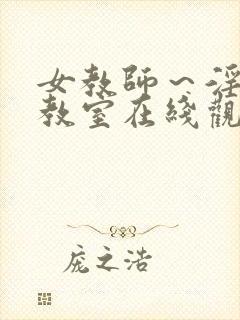 女教師～淫
教室在綫觀
庞之浩